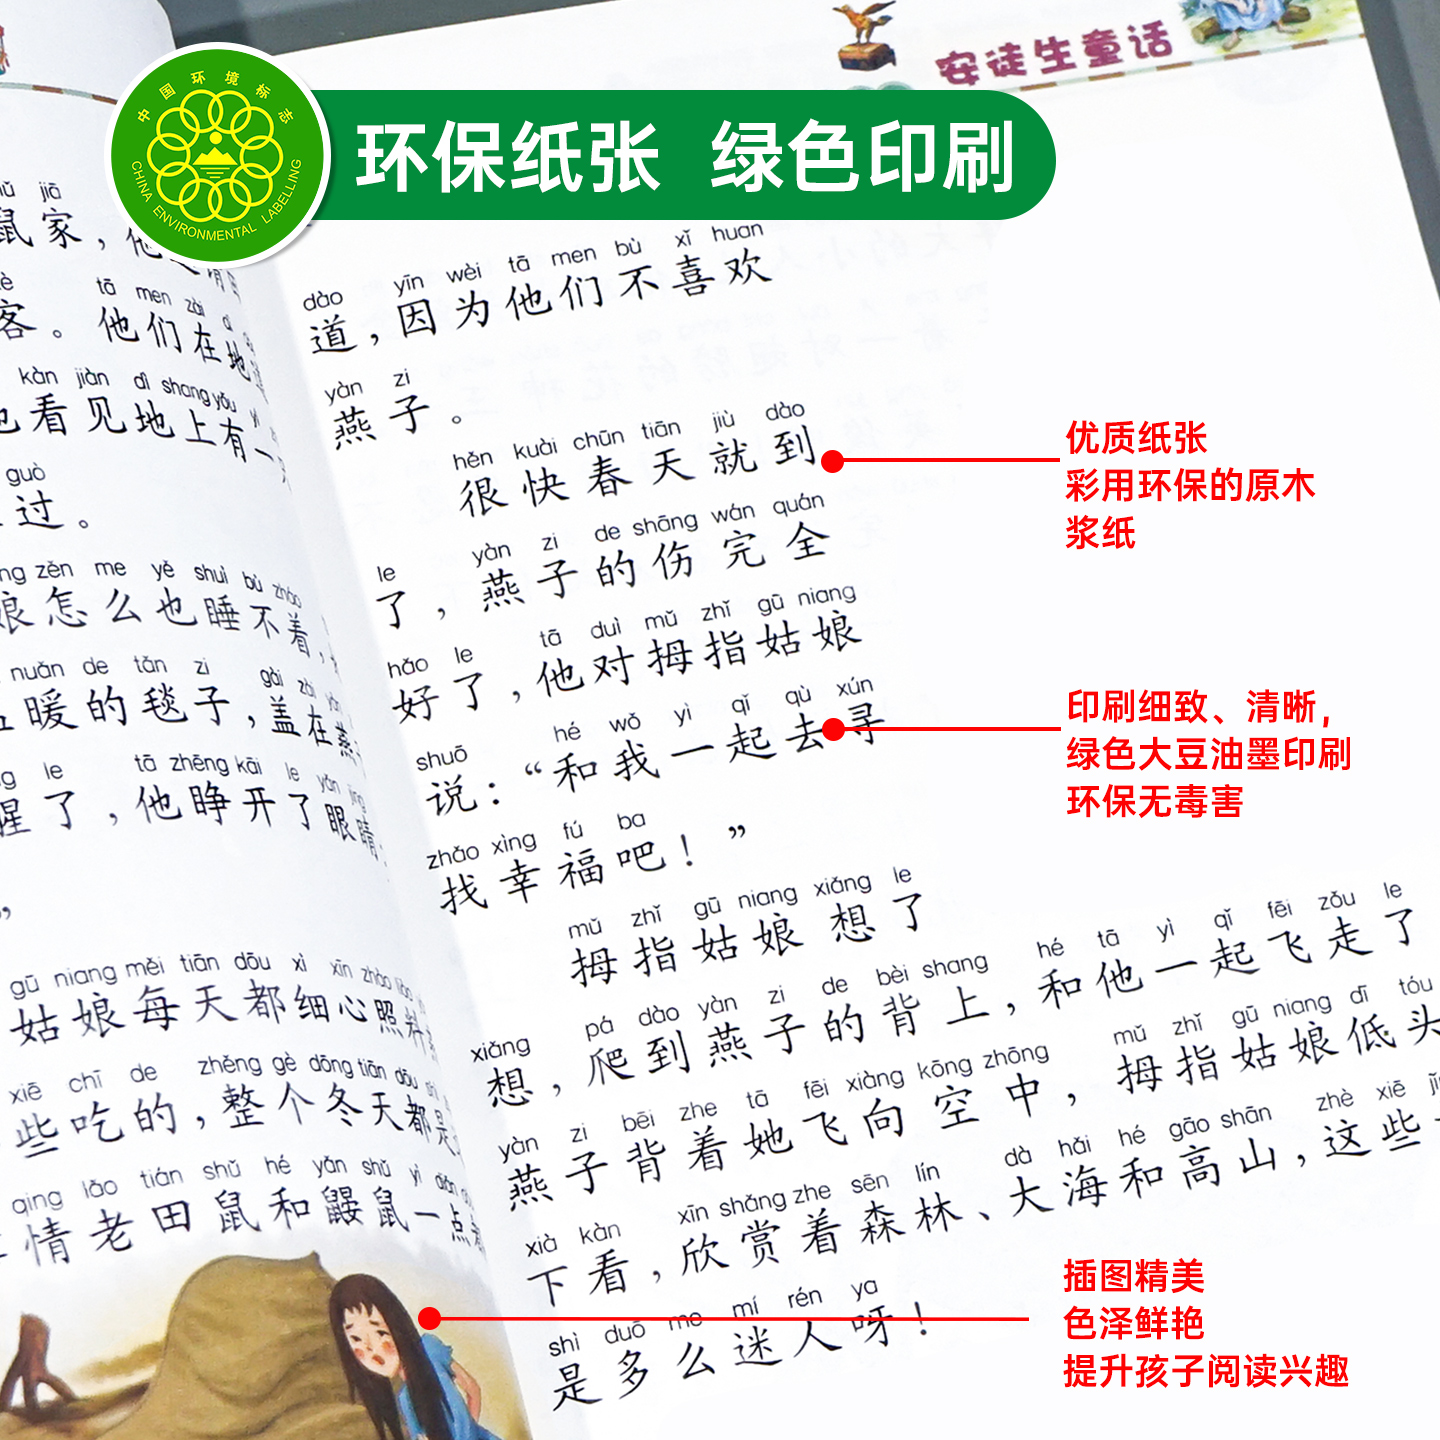 安徒生童话
中国环境标志
CHINA ENVIRONMENTAL LABELLING
环保纸张 绿色印刷
jiā
鼠家，他
tā men zài
客。他们在地
kàn jiàn dì shang yǒu
也看见地上有一
guò
过。
zěn me yě shuì bù zháo
娘怎么也睡不着，
nuǎn de tǎn zi gài zài yàn
暖的毯子，盖在燕
le tā zhēng kāi le yǎn jing
醒了，他睁开了眼睛
”
gū niang měi tiān dōu xì xīn zhào liào
姑娘每天都细心照料
xiē chī de zhěng gè dōng tiān dōu shì
些吃的，整个冬天都是
qing lǎo tián shǔ hé yǎn shǔ yì diǎn
情老田鼠和鼹鼠一点
dào yīn wèi tā men bù xǐ huan
道，因为他们不喜欢
yàn zi
燕子。
hěn kuài chūn tiān jiù dào
很快春天就到
le yàn zi de shāng wán quán
了，燕子的伤完全
hǎo le tā duì mǔ zhǐ gū niang
好了，他对拇指姑娘
shuō hé wǒ yì qǐ qù xún
说：“和我一起去寻
zhǎo xìng fú ba
找幸福吧！”
mǔ zhǐ gū niang xiǎng le
拇指姑娘想了
xiǎng pá dào yàn zi de bèi shang hé tā yì qǐ fēi zǒu le
想，爬到燕子的背上，和他一起飞走了
yàn zi bēi zhe tā fēi xiàng kōng zhōng mǔ zhǐ gū niang dī tóu
燕子背着她飞向空中，拇指姑娘低头
xià kàn xīn shǎng zhe sēn lín dà hǎi hé gāo shān zhè xiē
下看，欣赏着森林、大海和高山，这些
shì duō me mí rén ya
是多么迷人呀！
优质纸张
彩用环保的原木
浆纸
印刷细致、清晰，
绿色大豆油墨印刷
环保无毒害
插图精美
色泽鲜艳
提升孩子阅读兴趣